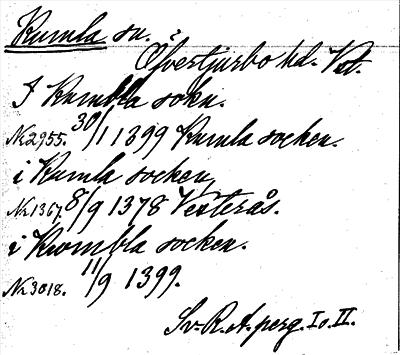 Kumla sn.
Öfvertjurbo hd. Vst.
I Kumbla sokn.
Nr 2955. 30/1 1399 Kumla socken.
i Kumla socken
Nr 1367. 8/9 1378 Vesterås.
i Kwmbla socken.
Nr 3018. 11/9 1399.
Sv. R. A. perg. I o. II.